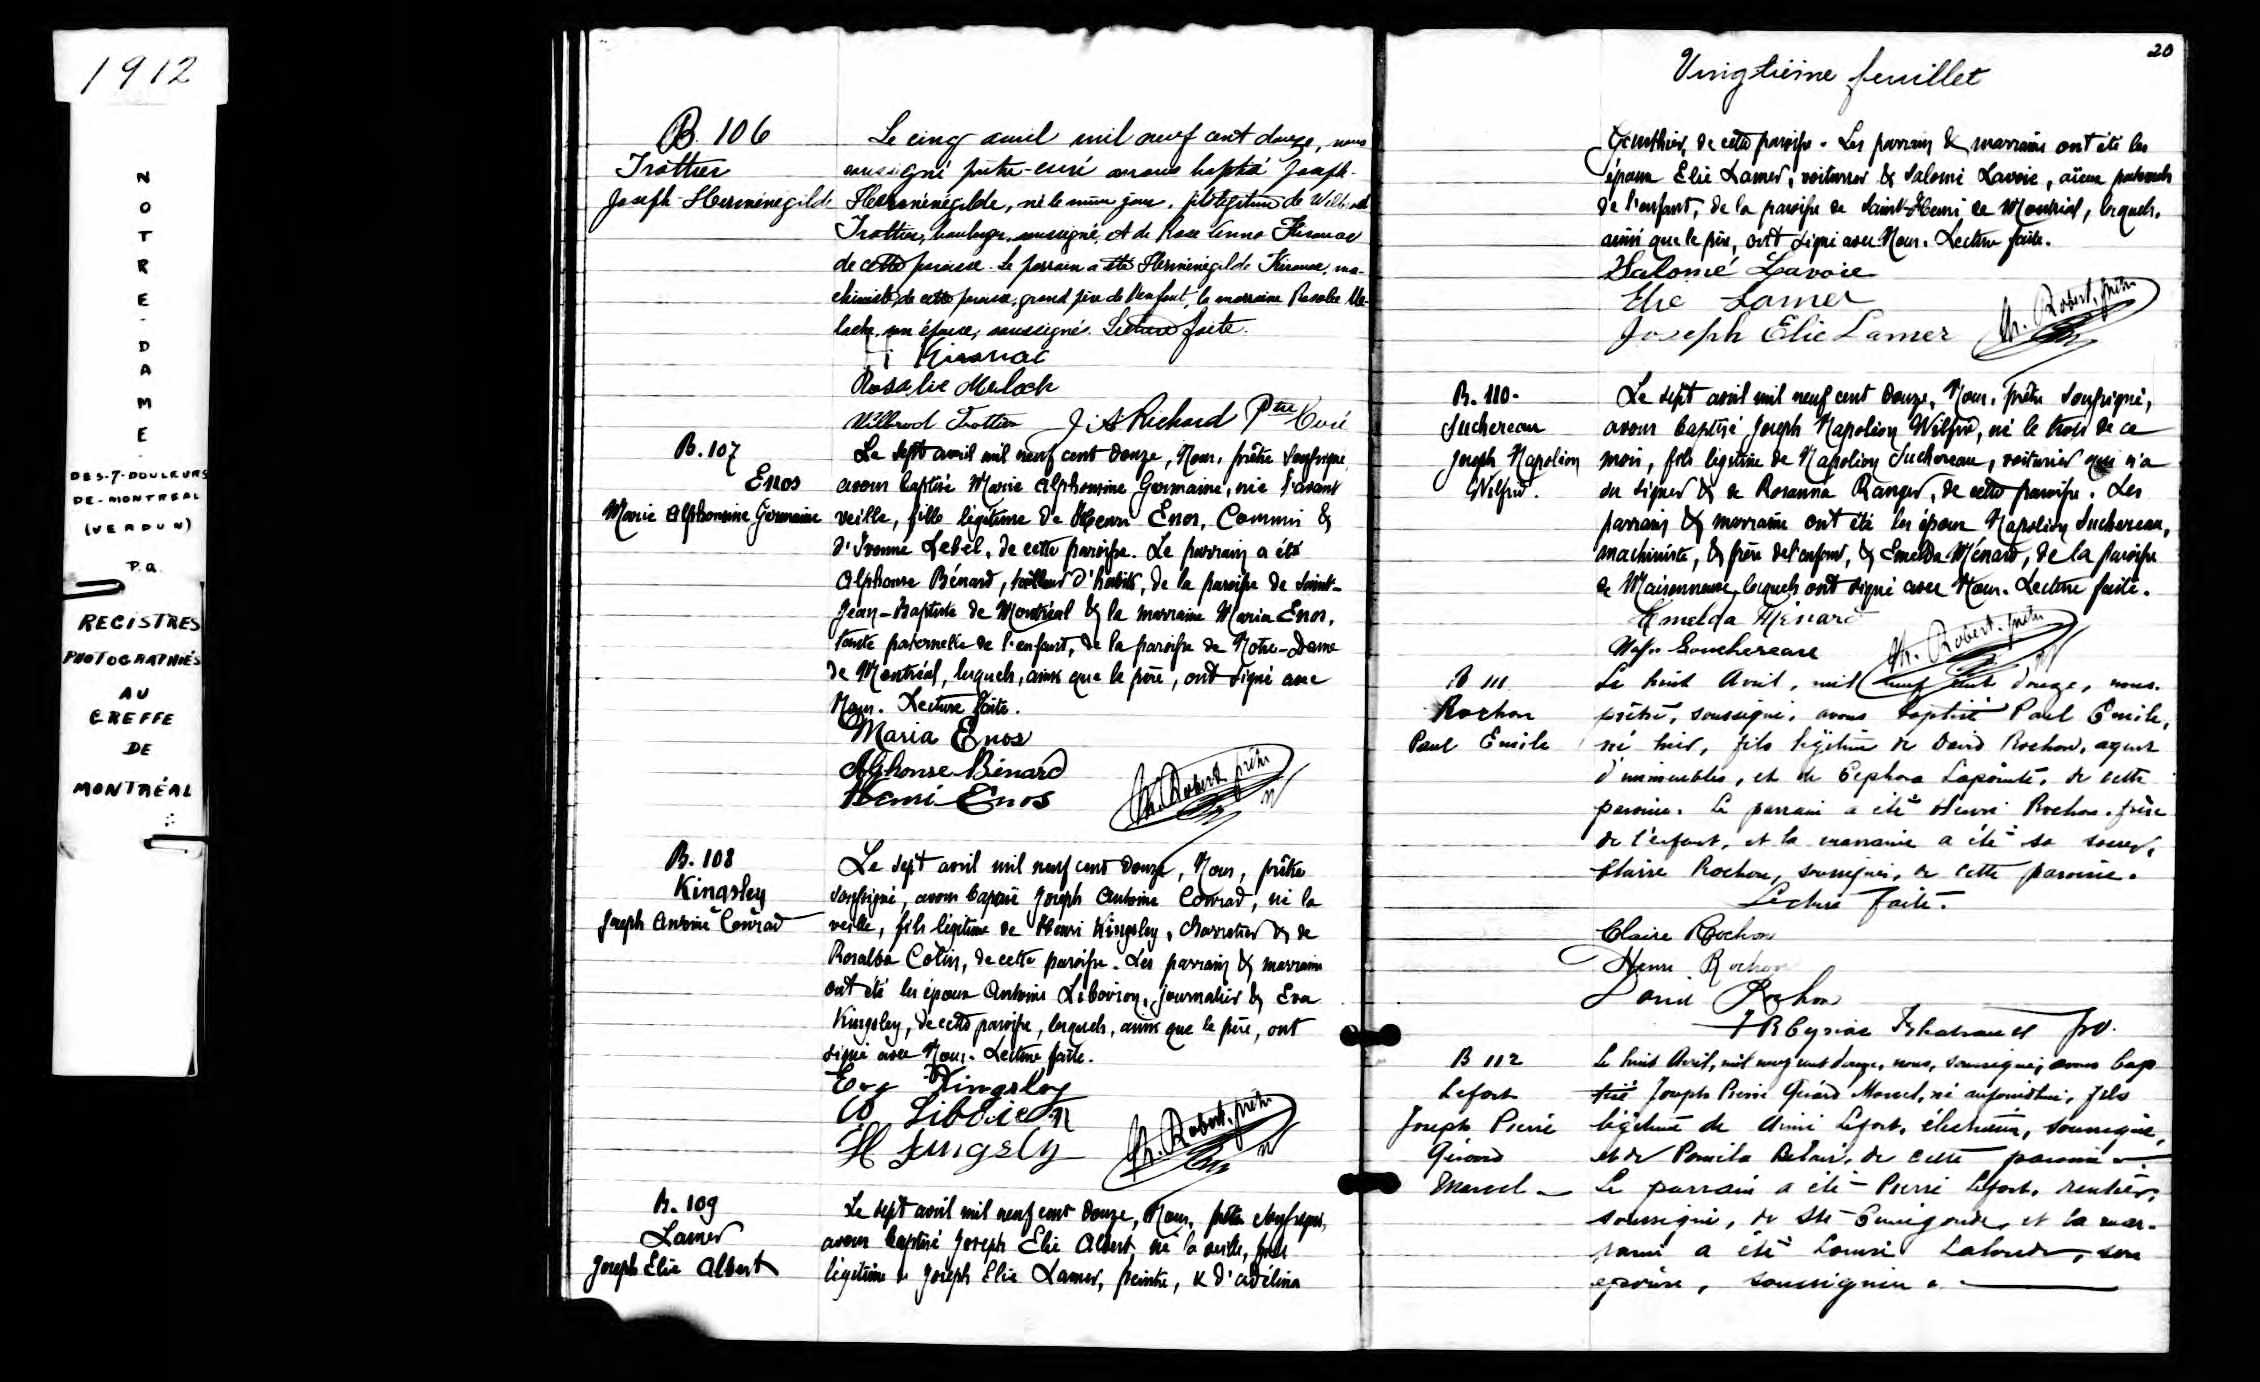 1912
NOTRE-DAME
DES-7-DOULEURS
DE-MONTREAL
(VERDUN)
P.Q.
REGISTRES
PHOTOGRAPHIÉS
AU
GREFFE
DE
MONTRÉAL
B. 106
Trottier
Joseph-Herménégilde
Le cinq avril mil neuf cent douze, nous
soussigné prêtre-curé avons baptisé Joseph-
Herménégilde, né le même jour, fils légitime de Wilbrod
Trottier, boulanger, soussigné, et de Rose Anna Kirouac
de cette paroisse. Le parrain a été Herménégilde Kirouac, ma-
chiniste, de cette paroisse, grand père de l'enfant, la marraine Rosalie Me-
loche, son épouse, soussignés. Lecture faite.
Kirouac
Rosalie Meloch
Wilbrod Trottier J. A. Richard Ptre Curé
B. 107
Enos
Marie Alphonsine Germaine
Le sept avril mil neuf cent douze, Nous, prêtre soussigné,
avons baptisé Marie Alphonsine Germaine, née l'avant
veille, fille légitime de Henri Enos, Commis &
d'Yvonne Lebel, de cette paroisse. Le parrain a été
Alphonse Bénard, tailleur d'habits, de la paroisse de Saint-
Jean-Baptiste de Montréal & la marraine Maria Enos,
tante paternelle de l'enfant, de la paroisse de Notre-Dame
de Montréal, lesquels, ainsi que le père, ont signé avec
Nous. Lecture faite.
Maria Enos
Alphonse Bénard
Henri Enos
Robert, prêtre
B. 108
Kingsley
Joseph Antoine Conrad
Le sept avril mil neuf cent douze, Nous, prêtre
soussigné, avons baptisé Joseph Antoine Conrad, né la
veille, fils légitime de Henri Kingsley, charretier & de
Rosalba Colin, de cette paroisse. Les parrain & marraine
ont été les époux Antoine Liboiron, journalier & Eva
Kingsley, de cette paroisse, lesquels, ainsi que le père, ont
signé avec Nous. Lecture faite.
Eva Kingsley
H Kingsly
Robert, prêtre
B. 109
Lamer
Joseph Elie Albert
Le sept avril mil neuf cent douze, Nous, prêtre soussigné,
avons baptisé Joseph Elie Albert, né la veille, fils
légitime de Joseph Elie Lamer, peintre, & d'Adélina
20
Vingtième feuillet
Gauthier, de cette paroisse. Les parrain & marraine ont été les
époux Elie Lamer, voiturier & Salomé Lavoie, aïeux paternels
de l'enfant, de la paroisse de Saint-Henri de Montréal, lesquels,
ainsi que le père, ont signé avec Nous. Lecture faite.
Salomé Lavoie
Elie Lamer
Joseph Elie Lamer
Robert, prêtre
B. 110.
Juchereau
Joseph Napoléon
Wilfrid.
Le sept avril mil neuf cent douze, Nous, prêtre soussigné,
avons baptisé Joseph Napoléon Wilfrid, né le trois de ce
mois, fils légitime de Napoléon Juchereau, voiturier qui n'a
su signer & de Rosanna Ranger, de cette paroisse. Les
parrain & marraine ont été les époux Napoléon Juchereau,
machiniste, & frère de l'enfant, & Emelda Ménard, de la paroisse
de Maisonneuve, lesquels ont signé avec Nous. Lecture faite.
Emelda Ménard
Robert, prêtre
B 111
Rochon
Paul Emile
Le huit Avril, mil neuf cent douze, nous,
prêtre, soussigné, avons baptisé Paul Emile,
né hier, fils légitime de David Rochon, agent
d'immeubles, et de Cephora Lapointe, de cette
paroisse. Le parrain a été Henri Rochon, frère
de l'enfant, et la marraine a été sa soeur,
Claire Rochon, soussignés, de cette paroisse.
Lecture faite.
Claire Rochon
Henri Rochon
David Rochon
B 112
Lefort
Joseph Pierre
Gérard
Marcel
Le huit Avril, mil neuf cent douze, nous, soussigné, avons bap
tisé Joseph Pierre Gérard Marcel, né aujourd'hui, fils
légitime de Aimé Lefort, électricien, soussigné,
et de Pomela Relair, de cette paroisse.
Le parrain a été Pierre Lefort, rentier,
soussigné, de Ste Cunégonde, et la mar-
raine a été Louise Lalonde, son
épouse, soussignée.